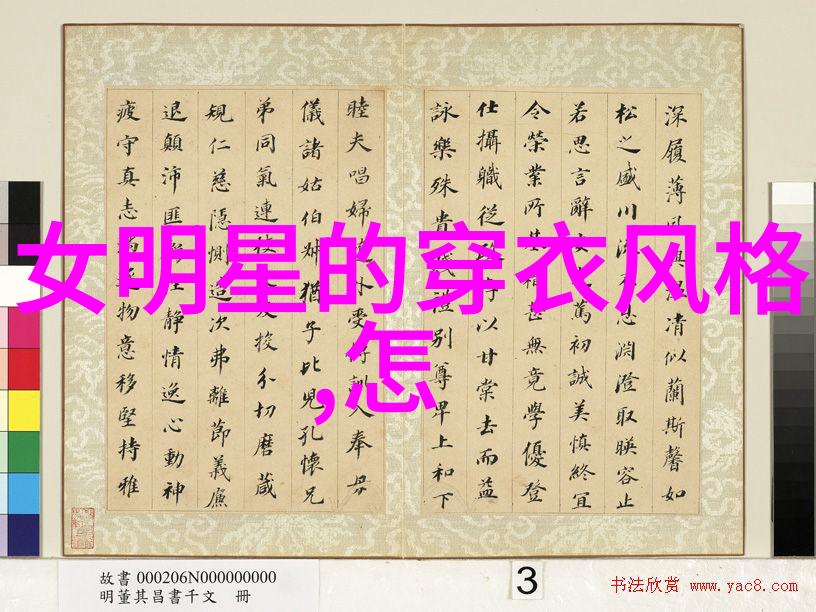 深履薄興清似蘭斯馨如
松之盛川流不息淵澄取暎容止
若思言辭篤初誠美慎終宜
令榮業所甚無竟學優登
仕攝職從以甘棠去而益
詠樂殊貴別尊卑上和下
睦夫唱婦外受訓入奉母
儀諸姑伯叔猶子比兒孔懷兄
弟同氣連投分切磨箴
規仁慈隱惻造次弗離節義廉
退顛沛匪靜情逸心動神
疲守真志物意移堅持雅
女明星的穿衣风格
,怎
故書 000206N000000000
明董其昌書千文 冊
3
书法欣赏 www.yac8.com